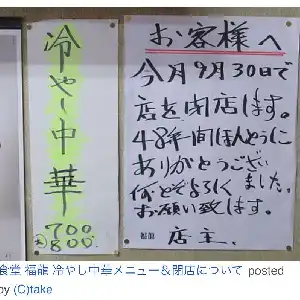 冷やし中華
700
大800.
お客様へ
今月9月30日で
店を閉店します。
48年間ほんとうに
ありがとうござい
ました。
何とぞよろしく
お願い致します。
福龍 店主.
食堂 福龍 冷やし中華メニュー＆閉店について posted
by (C)take